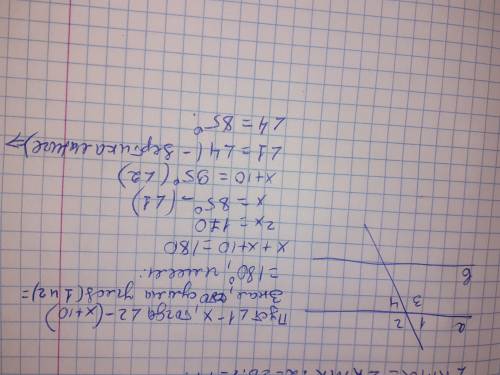 Пусть ∠1 - x, тогда ∠2 - (x+10)
Зная, сумма углов (1 и 2) =
= 180°, имеем:
x + x+10 = 180
2x = 170
x = 85° - (∠1)
x+10 = 95° (∠2)
∠1 = ∠4 (- вертикальные) ⇒
∠4 = 85°
a
1
2
3
4
в